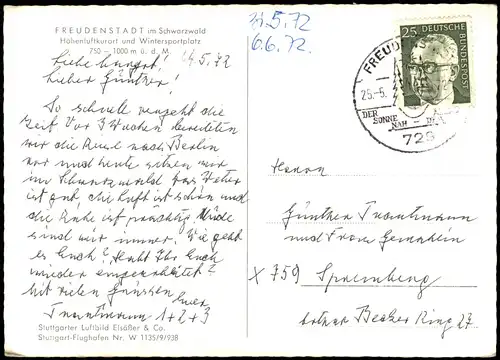 FREUDENSTADT im Schwarzwald
Höhenluftkurort und Wintersportplatz
750 – 1000 m ü. d. M.
24.5.72
Lieber Günther!
So schnell vergeht die
Zeit. Vor 3 Wochen bereiteten
wir die Reise nach Berlin
vor und heute sitzen wir
im Schwarzwald. Das Wetter
ist gut, die Luft ist schön und
die Ruhe ist prächtig. Müde
sind wir immer. Wie geht
es Euch? Habt Ihr Euch
wieder eingearbeitet?
Mit vielen Grüssen
Euer
Trautmann 1+2+3
Stuttgarter Luftbild Elsäßer & Co.
Stuttgart-Flughafen Nr. W 1135/9/938
31.5.72
6.6.72.
FREUDEN
25.-5.
DER SONNE NAH
729
25 DEUTSCHE BUNDESPOST
Herrn
Günther Trautmann
und Frau Gemahlin
X 759 Spremberg
Lothar Becker Ring 27